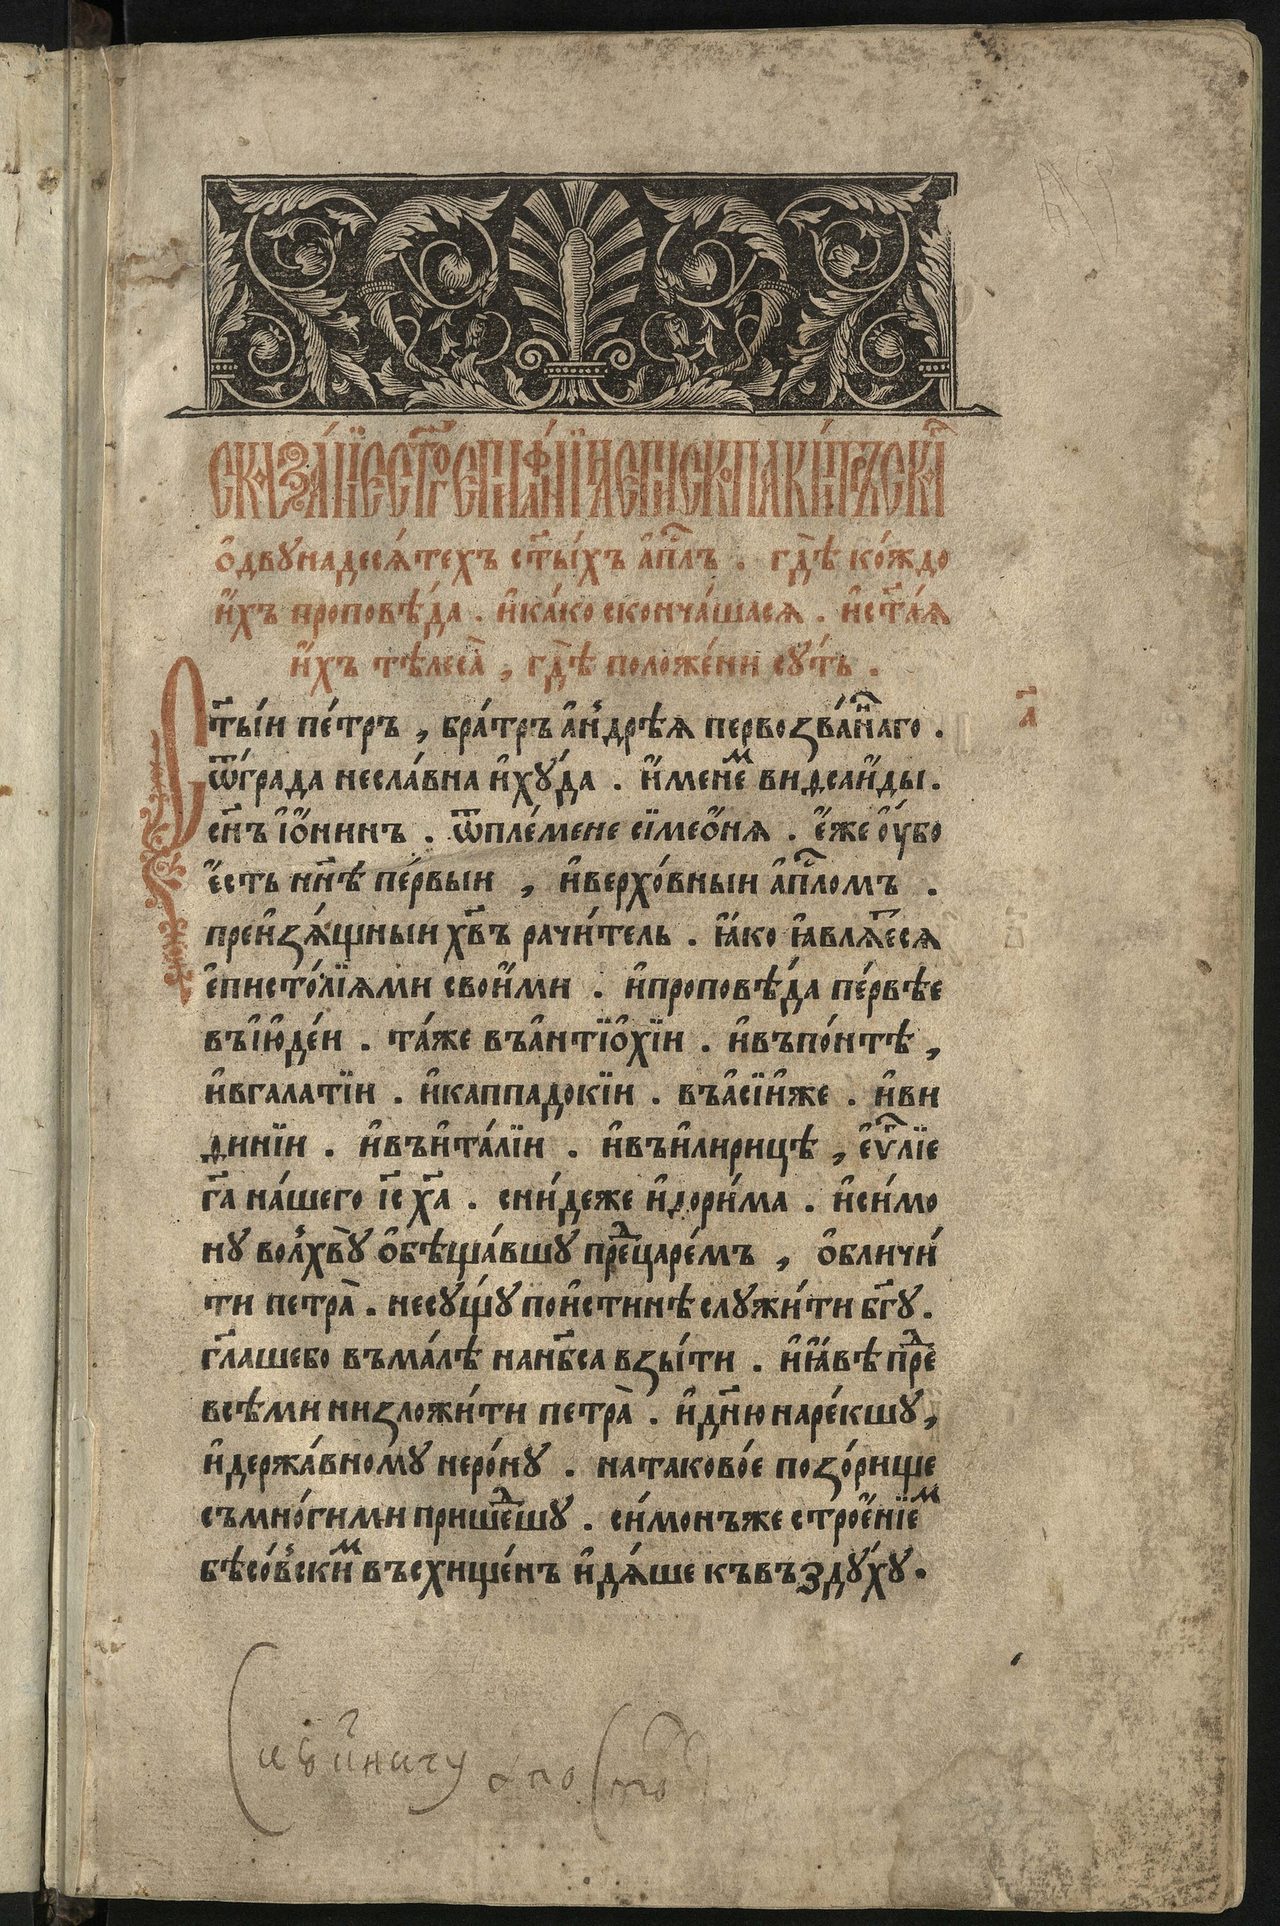 Сказа́нїе ст҃го є҆пифа́нїѧ є҆пископа ки́прьскаⷢ҇
ѻ҆двꙋнадесѧ́техъ ст҃ы́хъ а҆пⷭ҇лъ . гдѣ̀ ко́ждо
и҆́хъ проповѣ́да . и҆ка́ко сконча́шасѧ . и҆ст҃а́ѧ
и҆́хъ тѣлеса̀ , гдѣ̀ положе́ни сꙋ́ть .
Ст҃ы́и пе́тръ , бра́тръ а҆н̾дрѣ́ѧ первоꙁва́нⷩ҇аго .
ѿгра́да несла́вна и҆хꙋ́да . и҆́менеⷨ виѳсаи҆́ды .
сн҃ъ і҆ѡ҆́нинъ . ѿпле́мене сїмеѻ́нѧ . є҆́же ᲂу҆́бо
є҆́сть нн҃ѣ пе́рвыи , и҆верхо́вныи а҆пⷭ҇ломъ .
преи҆ꙁѧ́щныи хв҃ъ рачи́тель . ꙗ҆́ко ꙗ҆влѧ́еⷮсѧ
є҆писто́лїѧми свои҆́ми . и҆проповѣ́да пе́рвѣе
въі҆ю҆де́и . та́же въа҆нтїѻ҆хі́и . и҆въпо́нтѣ ,
и҆вгалатїи . и҆каппадокїи . въа҆сїи҆́же . и҆ви
ѳинїи . и҆въи҆та́лїи . и҆въи҆лирицѣ , є҆ѵⷢ҇лїе
гⷭ҇а на́шего і҆с҃ х҃а . сни́деже и҆дори́ма . и҆си́мо
нꙋ вол̾хвꙋ̀ ѻ҆бѣща́вшꙋ преⷣцаре́мъ , ѻ҆бличи́
ти петра̀ . несꙋ́щꙋ пои҆́стинѣ слꙋжи́ти бг҃ꙋ .
гл҃ашебо въма́лѣ нанб҃са вꙁы́ти . и҆ꙗ҆́вѣ преⷣ
всѣ́ми ниꙁложи́ти петра̀ . и҆дн҃ю наре́кшꙋ ,
и҆держа́вномꙋ неро́нꙋ . натаково́е поꙁо́рище
съмно́гими пришеⷣшꙋ . си́монъже строе҆́нїеⷨ
бѣсо́в̾скиⷨ въсхище́нъ и҆дѧ́ше къвъздꙋ́хꙋ .
а҃